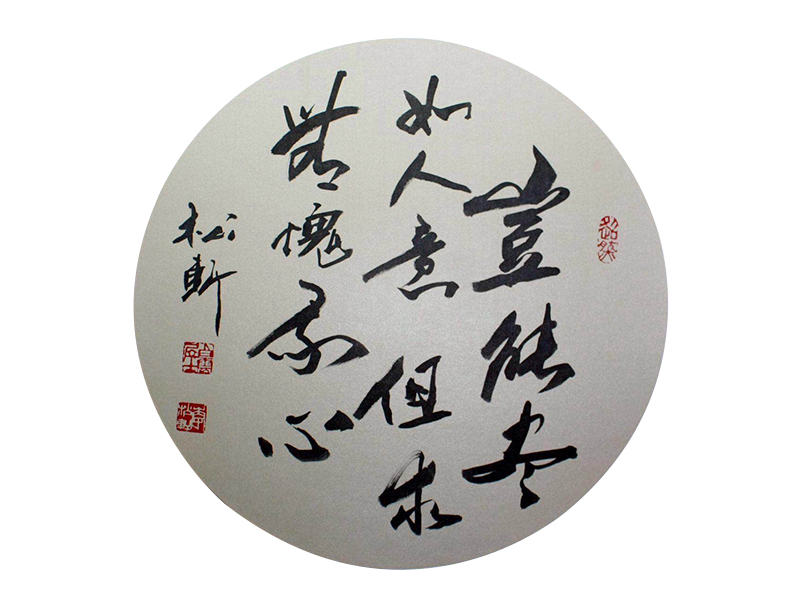 豈能尽
如人意但求
無愧我心
松軒